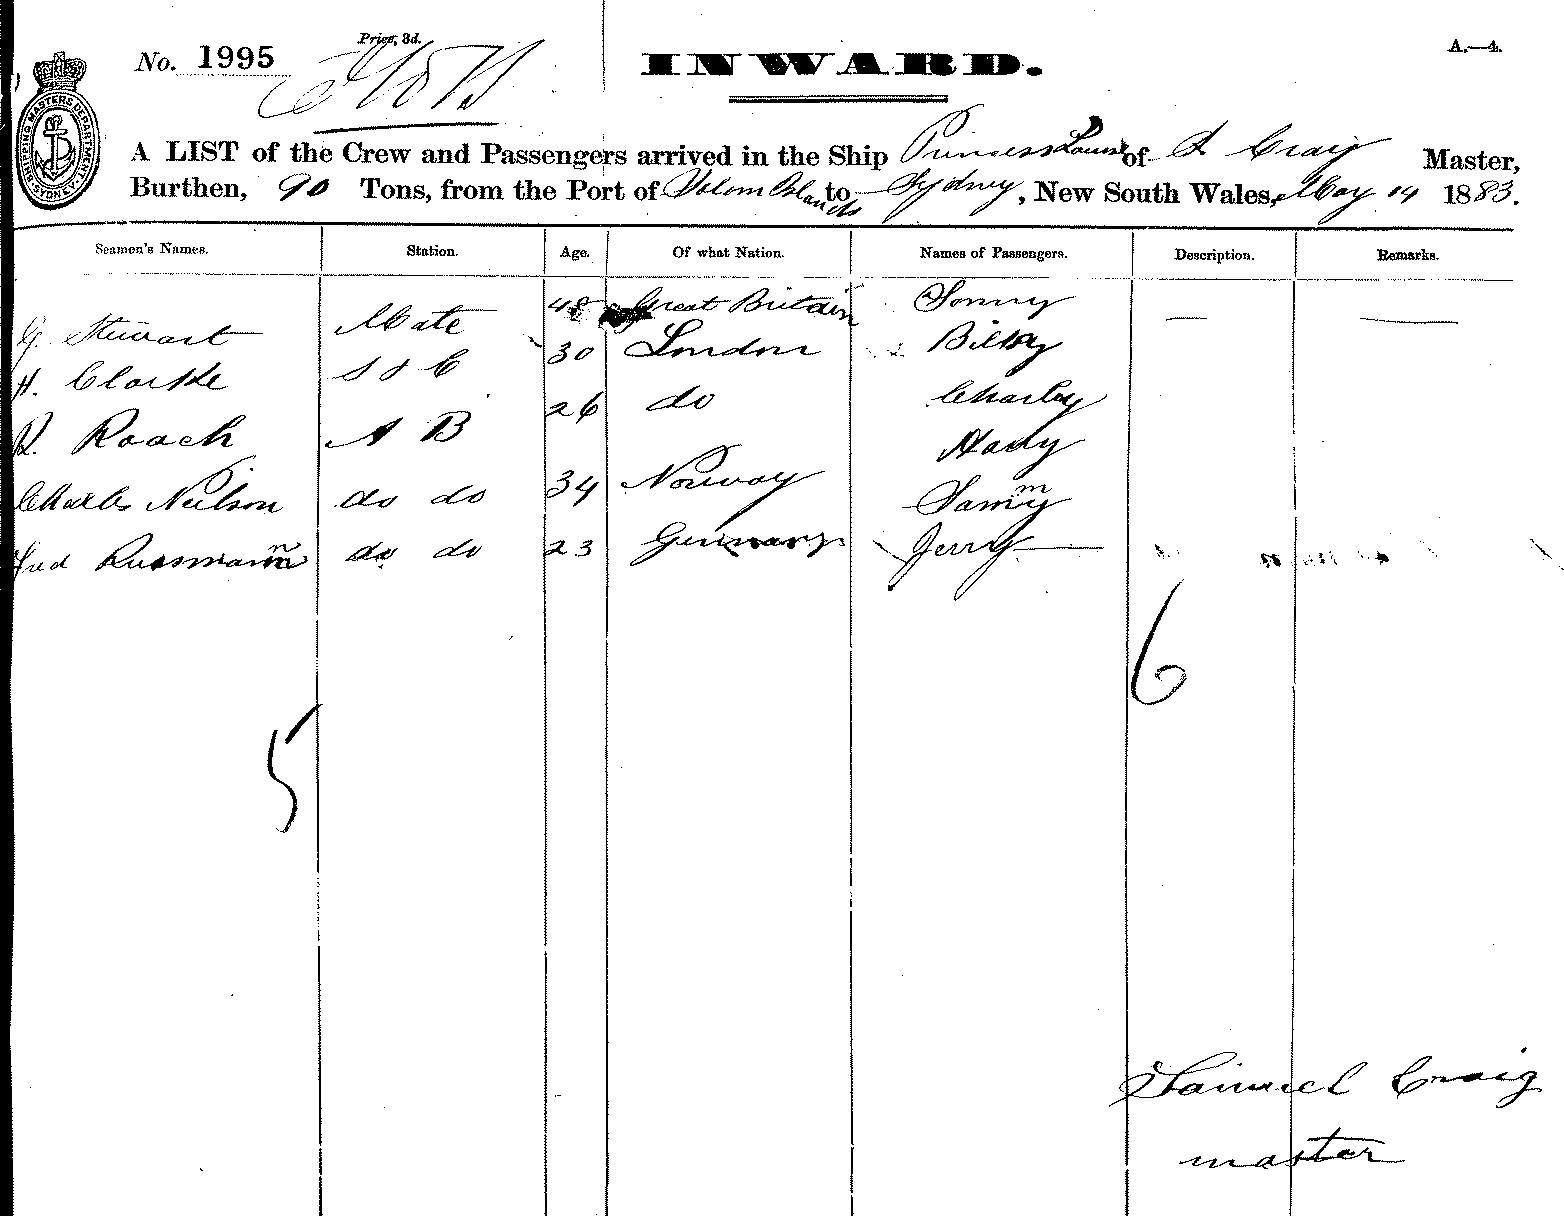 No. 1995
Price, 3d.
INWARD.
A.—4.
SHIPPING MASTERS DEPARTMENT SYDNEY
A LIST of the Crew and Passengers arrived in the Ship Princess Louise of S Craig Master,
Burthen, 90 Tons, from the Port of Solomon Islands to Sydney, New South Wales, May 14 1883.
Seamen's Names. Station. Age. Of what Nation. Names of Passengers. Description. Remarks.
G. Stewart Mate 48 Great Britain Sonny — —
H. Clarke S & C 30 London Billy
R. Roach A B 26 do Charley
Charles Neilson do do 34 Norway Harry
Fred do do 23 Germany Sammy
Jerry —
6
5
Samuel Craig
master